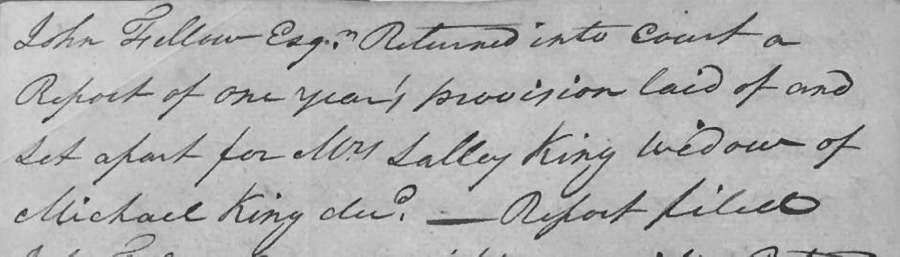 John Fellow Esqr. Returned into Court a
Report of one year's provision laid of and
Set apart for Mrs Salley King Widow of
Michael King decd. — Report filed
John